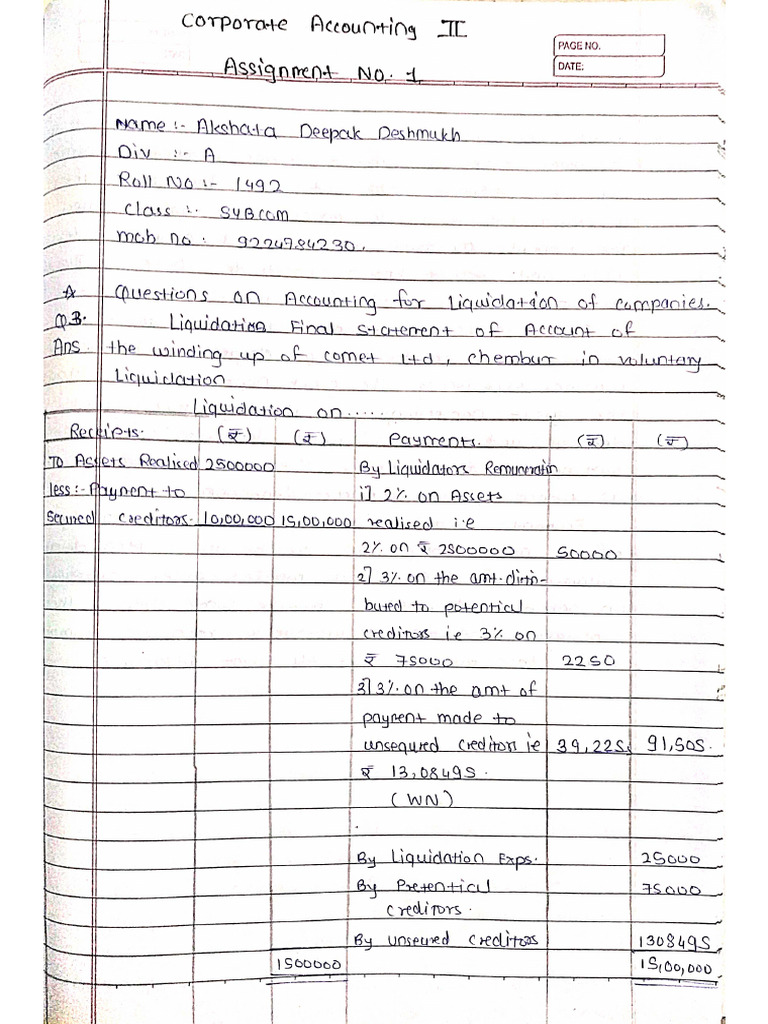 Corporate Accounting II
PAGE NO.
Assignment No. 1
DATE:
Name :- Akshata Deepak Deshmukh
Div :- A
Roll No :- 1492
Class :- SYBCOM
Mob no : 9224984230.
☆ Questions on Accounting for Liquidation of Companies.
Q3. Liquidation Final Statement of Account of
Ans the winding up of comet Ltd, chembur in voluntary
Liquidation
Liquidation on......
Receipts. (₹) (₹) Payments. (₹) (₹)
To Assets Realised 2500000 By Liquidators Remuneratin
less :- Payment to i] 2% on Assets
Secured creditors. 10,00,000 15,00,000 realised i.e
2% on ₹ 2500000 50000
2] 3% on the amt. distri-
buted to potential
creditors ie 3% on
₹ 75000 2250
3] 3% on the amt of
payment made to
unsequred creditors ie 39,225. 91,505.
₹ 13,08495.
(WN)
By Liquidation Exps. 25000
By Pretentical 75000
creditors.
By unseured creditors 1308495
1500000 15,00,000